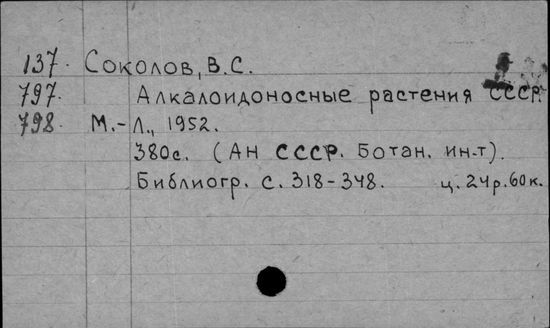 137. Соколов, В.С.
797. Алкалоидоносные растения СССР.
798. М.-Л., 1952.
380с. (АН СССР. Ботан. ин-т).
Библиогр. с. 318-348. ц. 24р.60к.